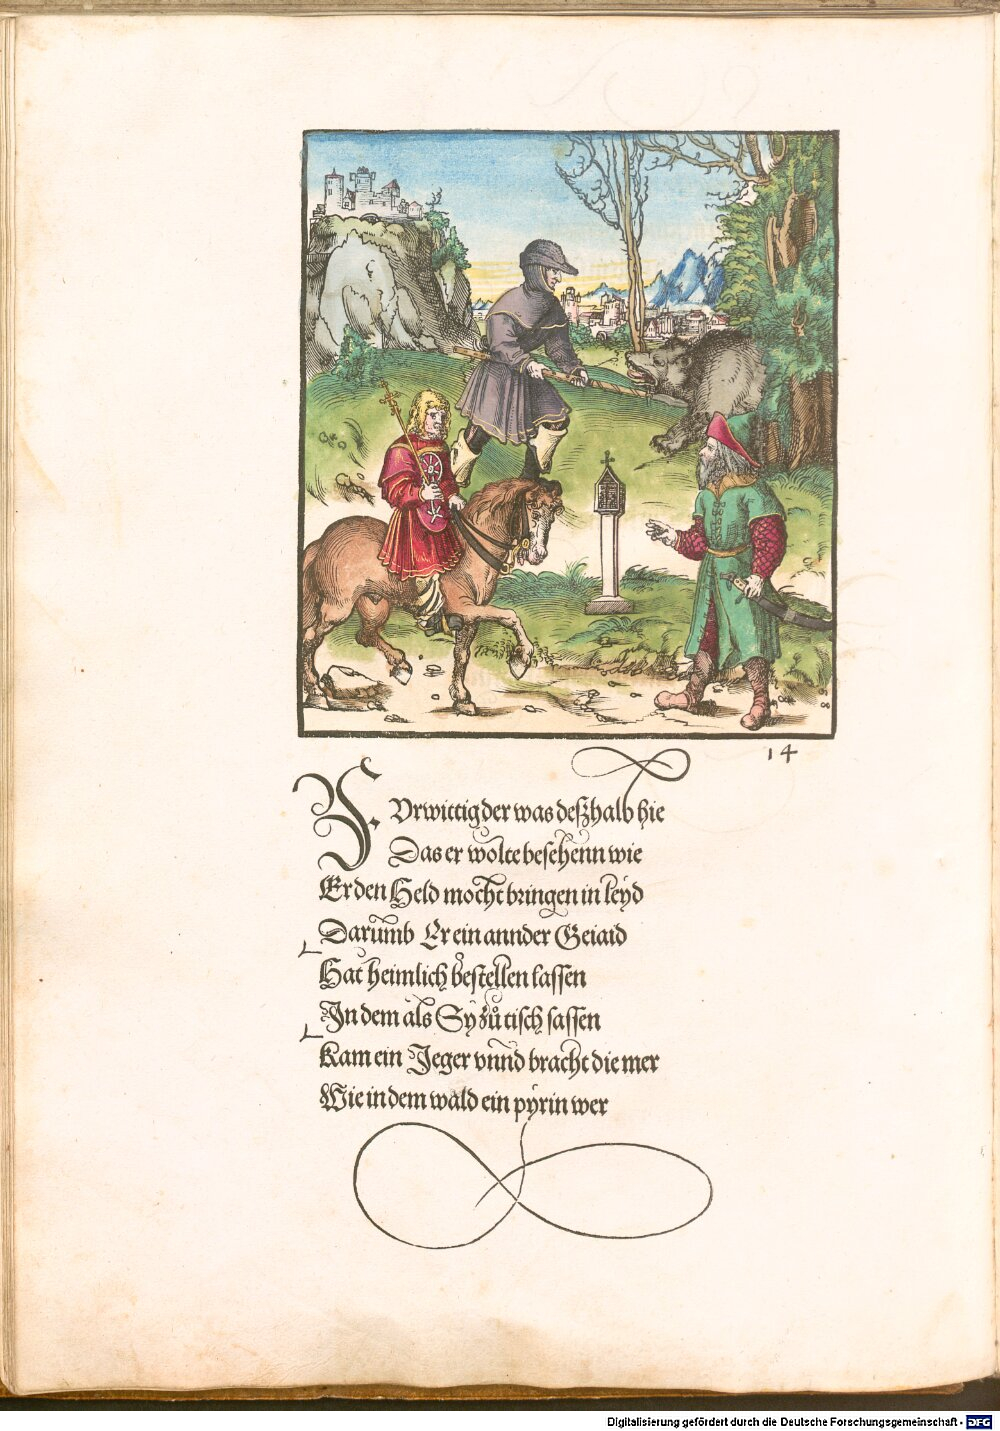 14
Fvrwittig der was deßhalb hie
Das er wolte besehenn wie
Er den Held mocht bringen in leyd
Darumb Er ein annder Geiaid
Hat heimlich bestellen lassen
In dem als Sy zů tisch sassen
Kam ein Jeger vnnd bracht die mer
Wie in dem wald ein pyrin wer
Digitalisierung gefördert durch die Deutsche Forschungsgemeinschaft - DFG